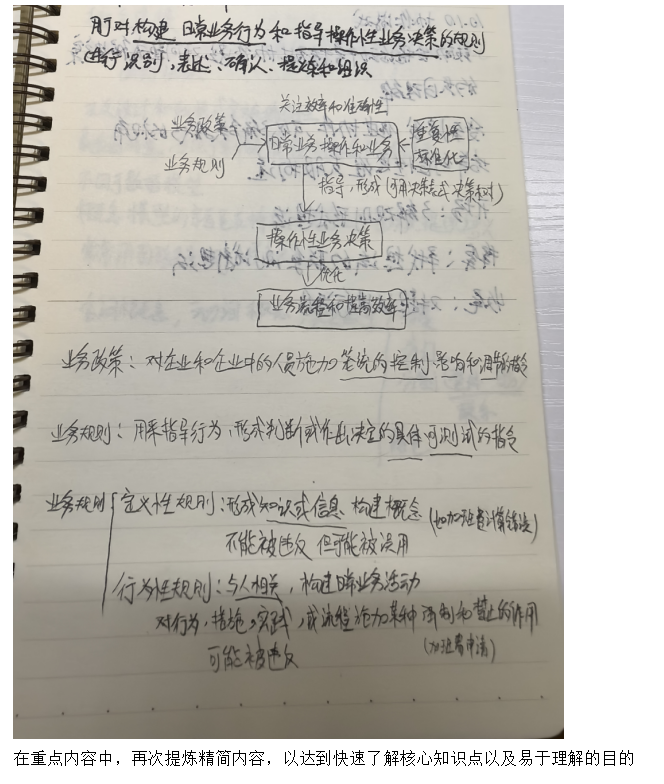 用对构建 日常业务行为和指导操作性业务决策的规则
进行识别,表述、确认、提炼和组织
关注效率和准确性
业务政策
业务规则
日常业务操作和业务
重复性
标准化
指导,形成(可用决策表或决策树)
操作性业务决策
优化
业务流程和提高效率
业务政策:对企业和企业中的人员施加笼统的控制,影响和调节的指令
业务规则:用来指导行为,形成判断或作出决定的具体可测试的指令
业务规则
定义性规则:形成知识或信息 构建概念(如加班费计算错误)
不能被违反 但可能被误用
行为性规则:与人相关,构建日常业务活动
对行为,措施,实践,或流程施加某种 强制和禁止的作用
可能被违反
(加班需申请)
在重点内容中,再次提炼精简内容,以达到快速了解核心知识点以及易于理解的目的